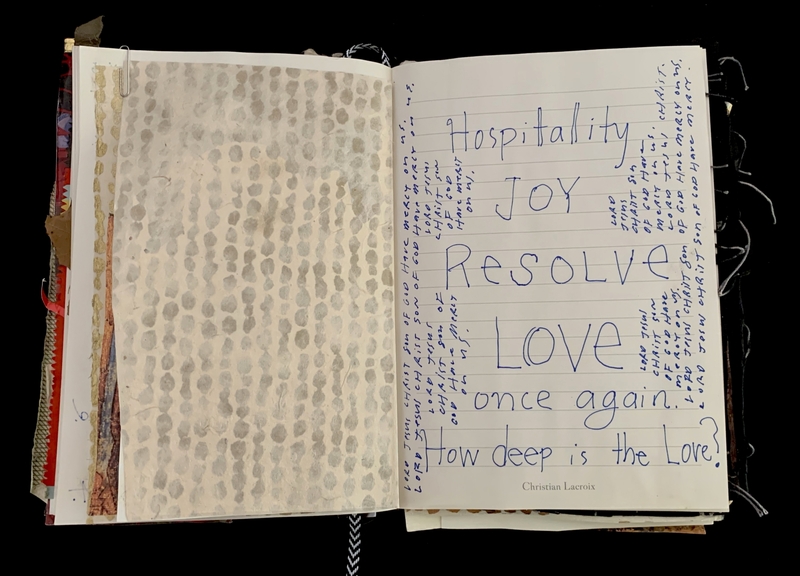 Hospitallity
JOY
RESOLVE
LOVE
once again.
How deep is the Love?
Christian Lacroix
LORD JESUS CHRIST SON OF GOD HAVE MERCY ON US.
LORD JESUS CHRIST SON OF GOD HAVE MERCY ON US.
LORD JESUS
CHRIST SON
OF GOD
HAVE MERCY
ON US.
LORD JESUS
CHRIST SON OF
GOD HAVE MERCY
ON US.
LORD
JESUS
CHRIST SON
OF GOD HAVE
MERCY ON US.
LORD JESUS CHRIST.
LORD JESUS
CHRIST SON
OF GOD HAVE
MERCY ON US.
LORD JESUS CHRIST SON OF GOD HAVE MERCY ON US,
LORD JESUS CHRIST SON OF GOD HAVE MERCY.